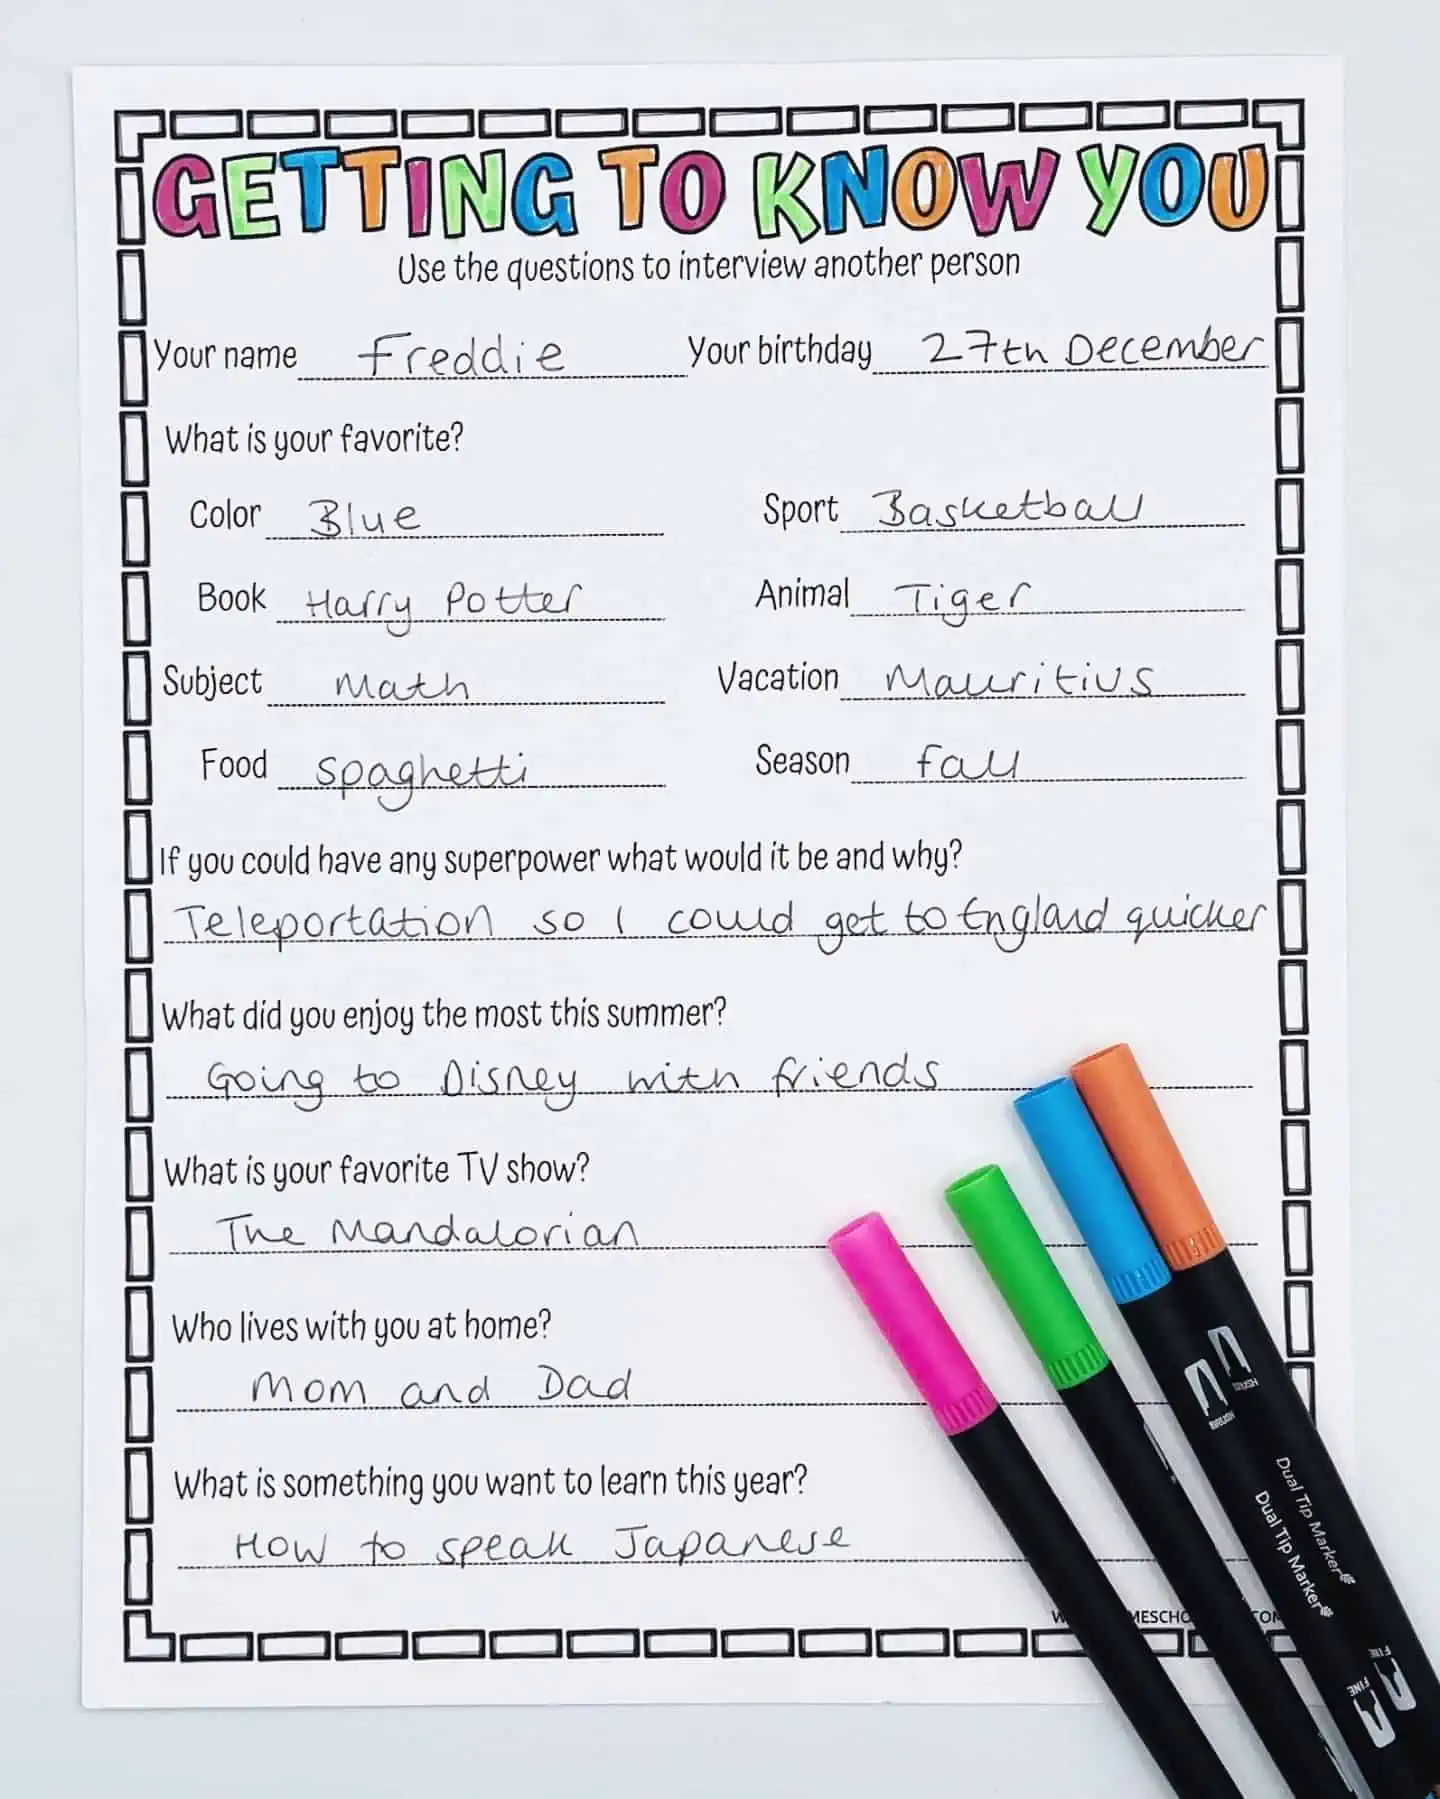 GETTING TO KNOW YOU
Use the questions to interview another person
Your name Freddie Your birthday 27th December
What is your favorite?
Color Blue Sport Basketball
Book Harry Potter Animal Tiger
Subject Math Vacation Mauritius
Food spaghetti Season fall
If you could have any superpower what would it be and why?
Teleportation so I could get to England quicker
What did you enjoy the most this summer?
Going to Disney with friends
What is your favorite TV show?
The Mandalorian
Who lives with you at home?
Mom and Dad
What is something you want to learn this year?
How to speak Japanese
Dual Tip Marker
Dual Tip Marker
FINE
FINE